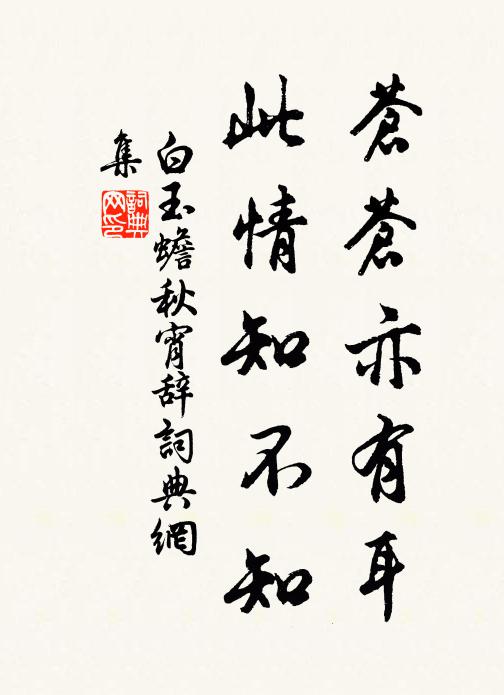 蒼蒼亦有耳
此情知不知
白玉蟾秋宵辞詞典網
集
詞典
网印